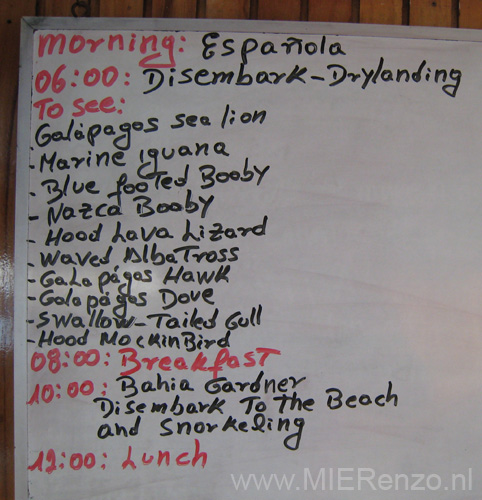 morning: Española
06:00: Disembark-Drylanding
To see:
Galápagos sea lion
- Marine iguana
- Blue footed Booby
- Nazca Booby
- Hood Lava Lizard
- Waved AlbaTross
- GaLapágos Hawk
- Galapágos Dove
- Swallow-Tailed Gull
- Hood MockinBird
08:00: Breakfast
10:00: Bahia Gardner
Disembark To The Beach
and Snorkeling
12:00: Lunch
www.MIERenzo.nl